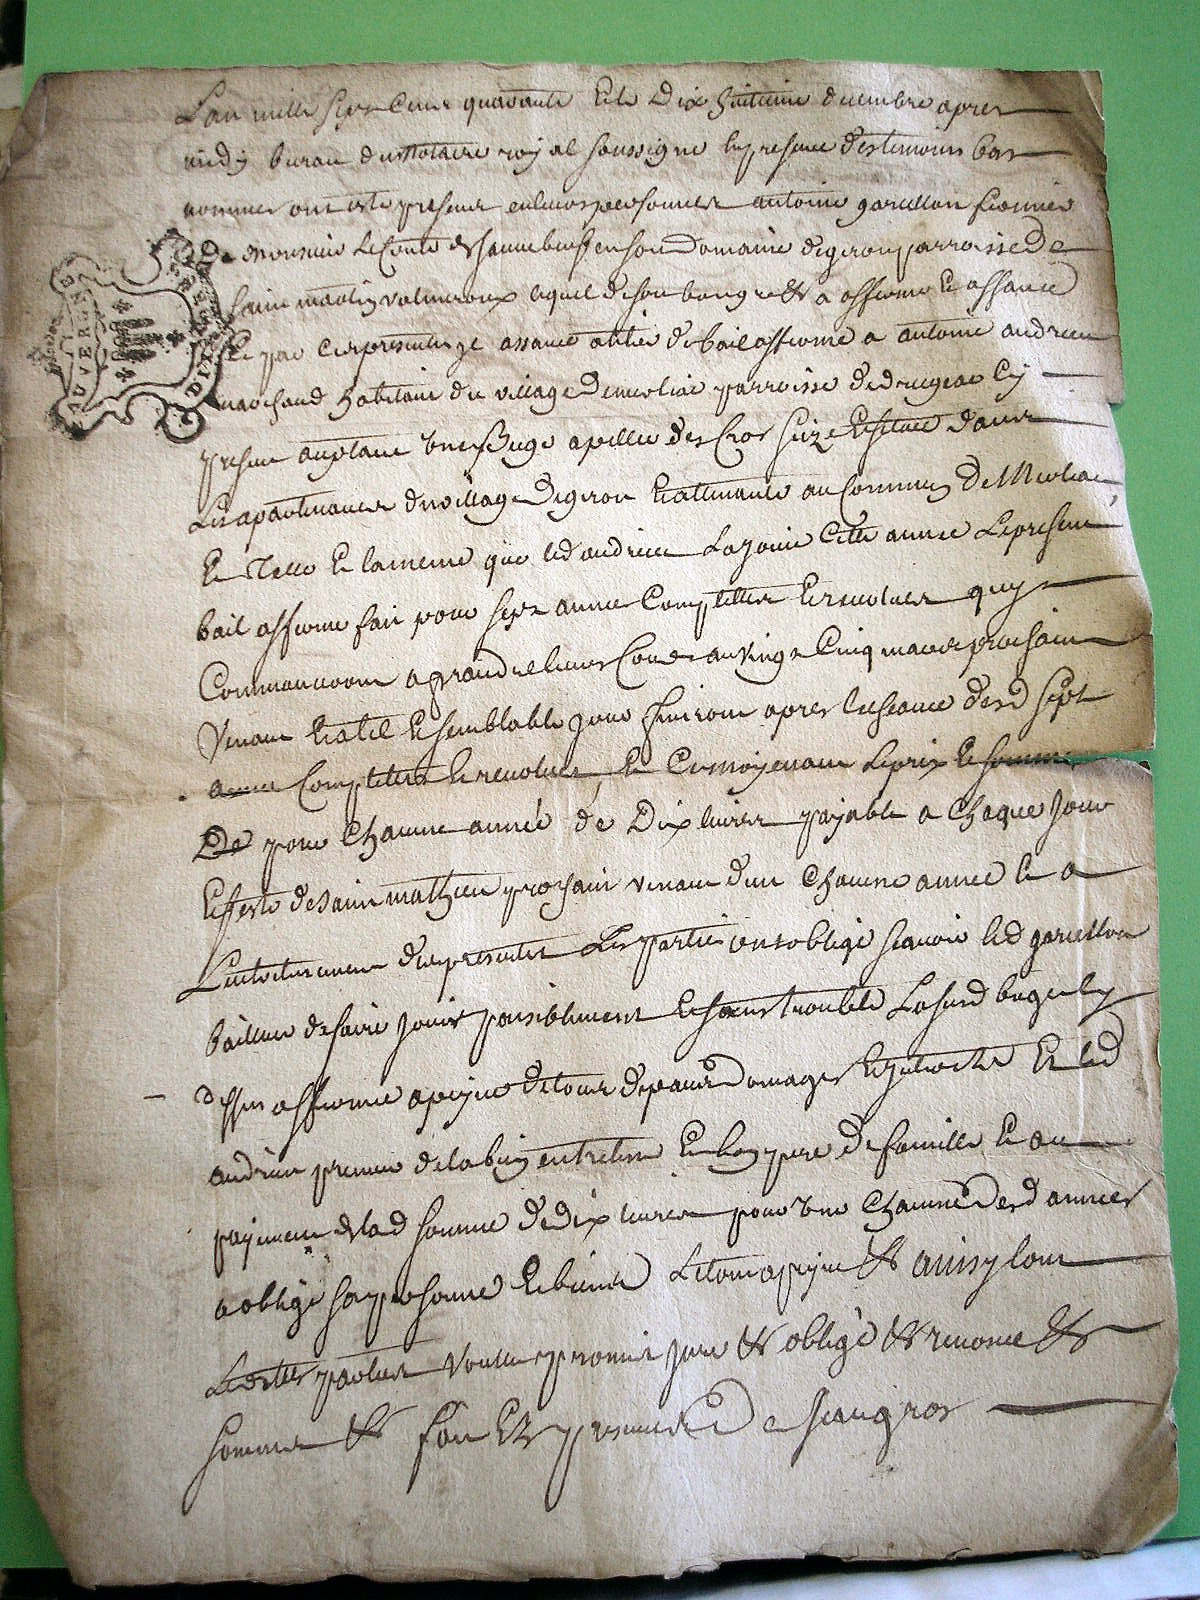 L'an mille sept cens quarante et le dix huitieme decembre apres
midy bureau du notaire royal soussigné en presence des temoins bas
nommes ont esté present en leurs personnes antoine garcellon fermier
de monsieur le Comte de en son domaine de giron parroisse de
saint martin valmeroux lequel de son bon gré &c a afferme et assancé
et par ces presentes assance a titre de bail afferme a antoine andrieu
marchand habitant du village de merliac parroisse de drugeac cy
present acceptant une Buge apellée des Cros size et scituée dans
les apartenances du village de giron et attenante au Commun de Merliac
et telle et la meme que led andrieu la jouie cette année le present
bail afferme fait pour sept années Complettes et revolues quy
Commanceront a prandre leurs Cours au vingt Cinq mars prochain
venant et a tel et semblable jour finiront apres desd sept
années Complettes et revolues, et Ce moyenant le prix et somme
De pour Chacune année de Dix livres payable a Chaque jour
et feste de saint mathieu prochain venant d'une Chacune année et a
L'entretenement des presentes Les parties ont obligé scavoir led garcellon
bailleur de faire jouir paisiblement et sans trouble Lasusd buge cy
dessus afferme a peyne de tous depans domages et interests Et led
andrieu preneur de la bien entretenir en bon pere de famille et au
payement de lad somme de dix livres pour une Chacune desd années
a obligé sa personne et biens Le tout a peyne &c ainsy lont
Lesdtes parties voulu promis juré &c obligé &c renoncé &c
sommes &c fait Et presence De jean gros
AUVERGN
DIX DEN